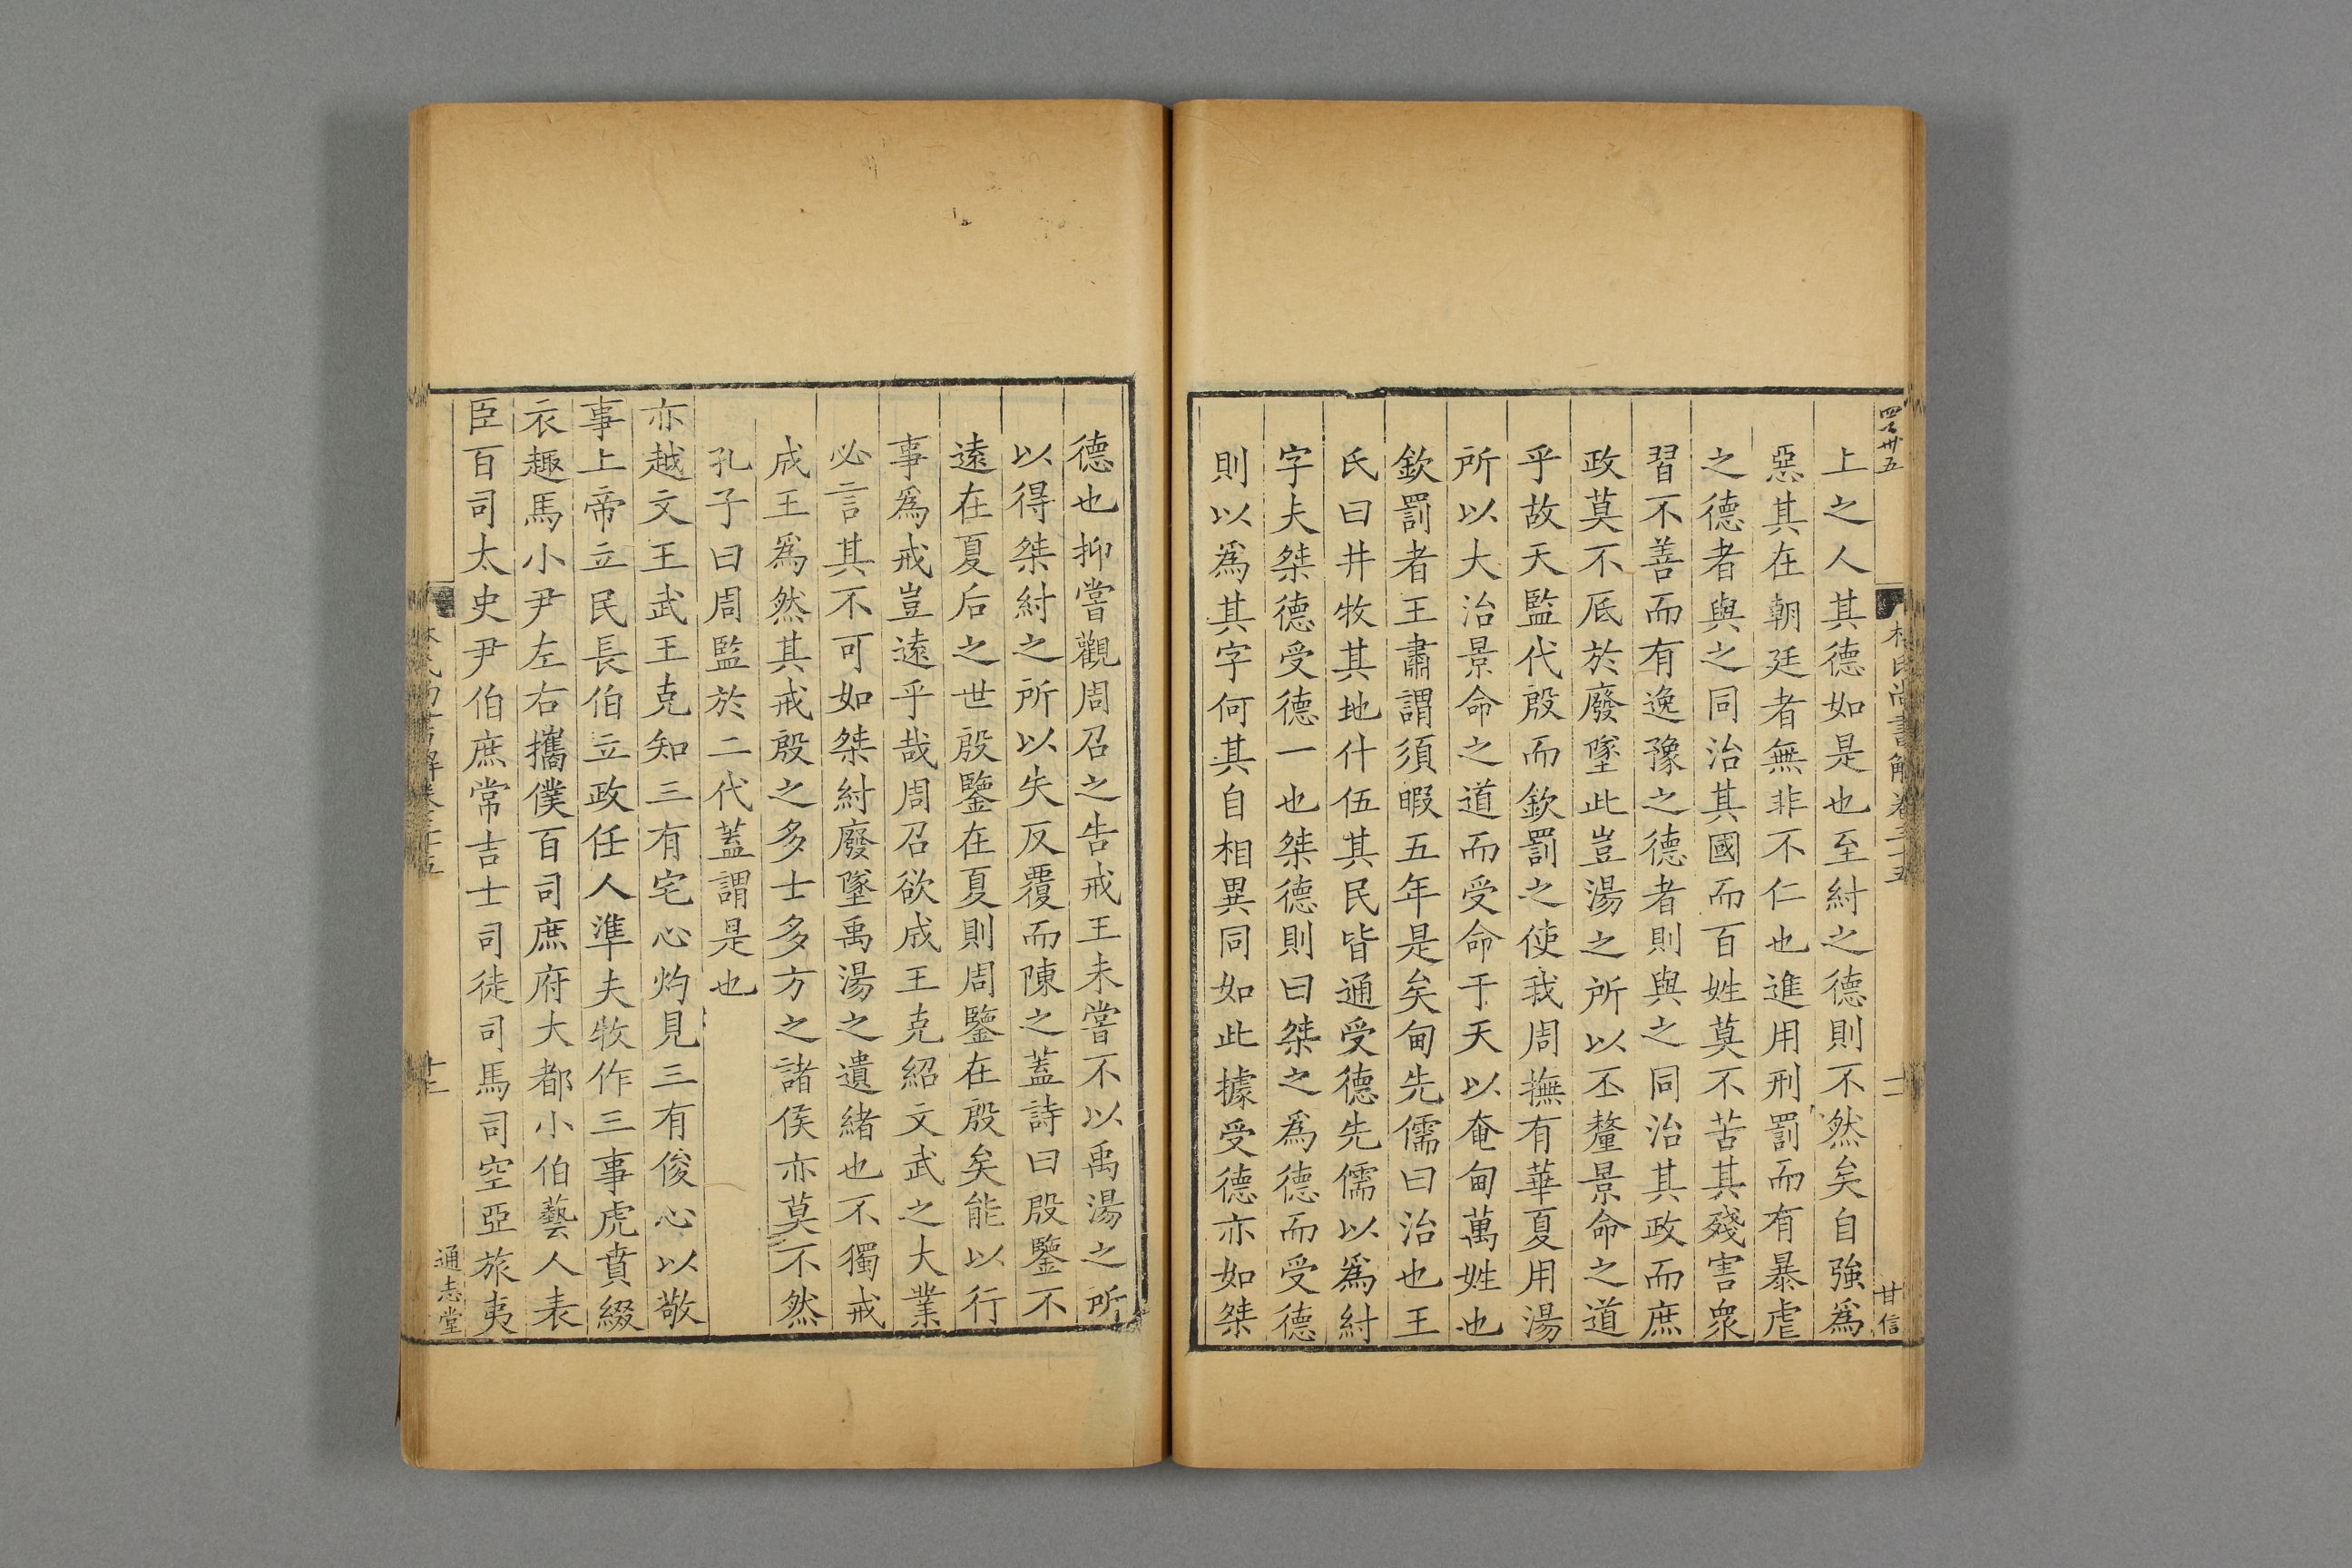 上之人其德如是也至紂之德則不然矣自強爲
惡其在朝廷者無非不仁也進用刑罰而有暴虐
之德者與之同治其國而百姓莫不苦其殘害衆
習不善而有逸豫之德者則與之同治其政而庶
政莫不底於廢墜此豈湯之所以丕釐景命之道
乎故天監代殷而欽罰之使我周撫有華夏用湯
所以大治景命之道而受命于天以奄甸萬姓也
欽罰者王肅謂須暇五年是矣甸先儒曰治也王
氏曰井牧其地什伍其民皆通受德先儒以爲紂
字夫桀德受德一也桀德則曰桀之爲德而受德
則以爲其字何其自相異同如此據受德亦如桀
德也抑嘗觀周召之告戒王未嘗不以禹湯之所
以得桀紂之所以失反覆而陳之蓋詩曰殷鑒不
遠在夏后之世殷鑒在夏則周鑒在殷矣能以行
事爲戒豈遠乎哉周召欲成王克紹文武之大業
必言其不可如桀紂廢墜禹湯之遺緒也不獨戒
成王爲然其戒殷之多士多方之諸侯亦莫不然
孔子曰周監於二代蓋謂是也
亦越文王武王克知三有宅心灼見三有俊心以敬
事上帝立民長伯立政任人準夫牧作三事虎賁綴
衣趣馬小尹左右攜僕百司庶府大都小伯藝人表
臣百司太史尹伯庶常吉士司徒司馬司空亞旅夷
通志堂